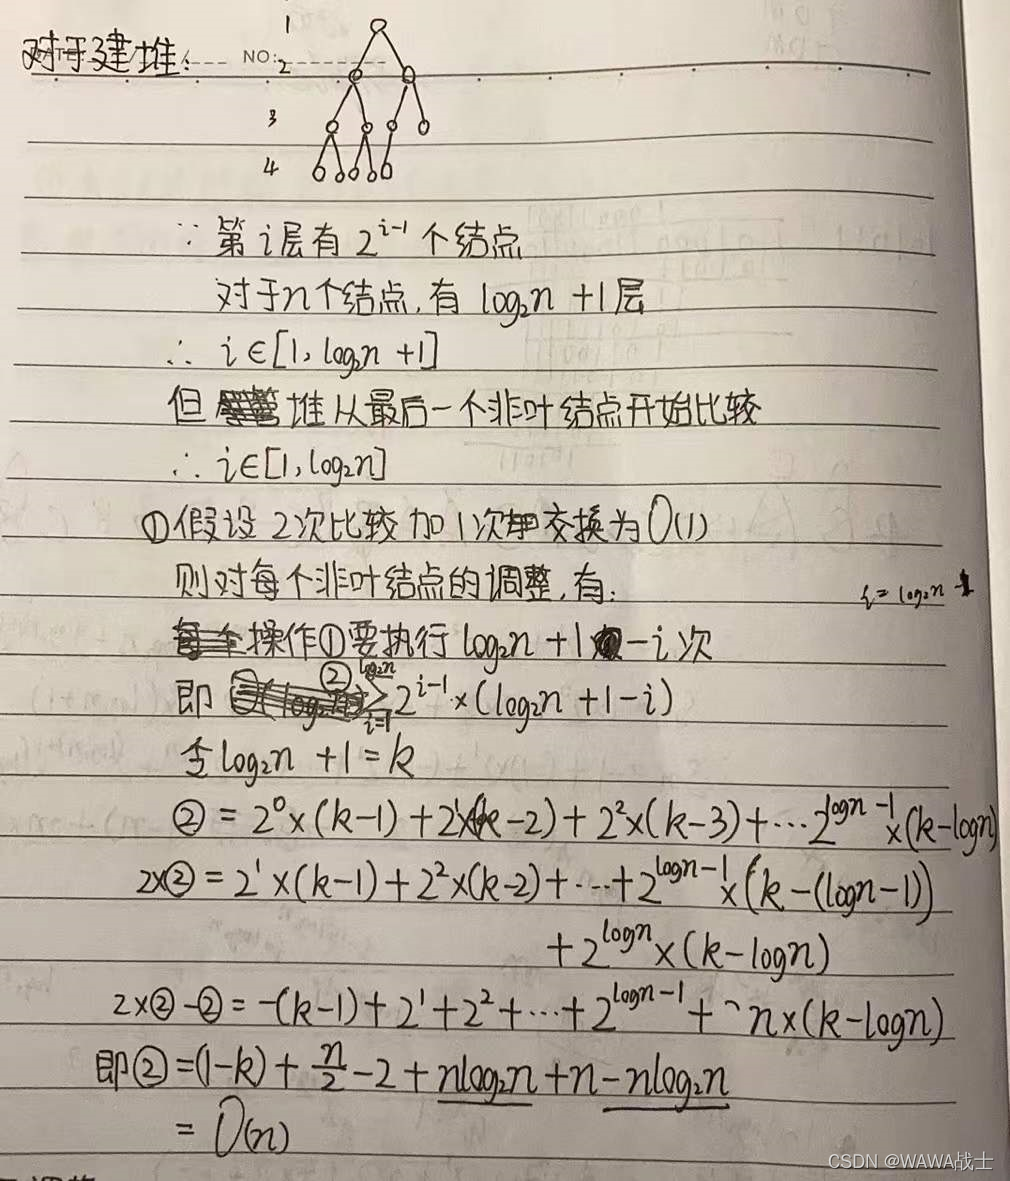 1
对于建堆: NO: 2
3
4
∵ 第i层有 2^{i-1} 个结点
对于n个结点, 有 log₂n +1层
∴ i∈[1, log₂n +1]
但 堆从最后一个非叶结点开始比较
∴ i∈[1, log₂n]
①假设2次比较加1次交换为O(1)
则对每个非叶结点的调整, 有:
操作①要执行 log₂n +1 -i次
即 ② ∑_{i=1}^{log₂n} 2^{i-1} ×(log₂n +1-i)
令 log₂n +1=k
② = 2⁰×(k-1)+2¹×(k-2)+2²×(k-3)+…2^{logn-1}×(k-logn)
2×② = 2¹×(k-1)+2²×(k-2)+…+2^{logn-1}×(k-(logn-1))
+2^{logn}×(k-logn)
2×②-② = -(k-1)+2¹+2²+…+2^{logn-1}+n×(k-logn)
即② =(1-k)+n/2-2+nlog₂n+n-nlog₂n
= O(n)
CSDN @WAWA战士